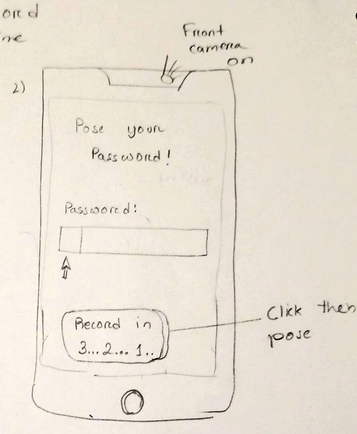 ord
ne
Front
camera
on
2)
Pose your
Password!
Password:
Record in
3... 2... 1..
Click then
pose